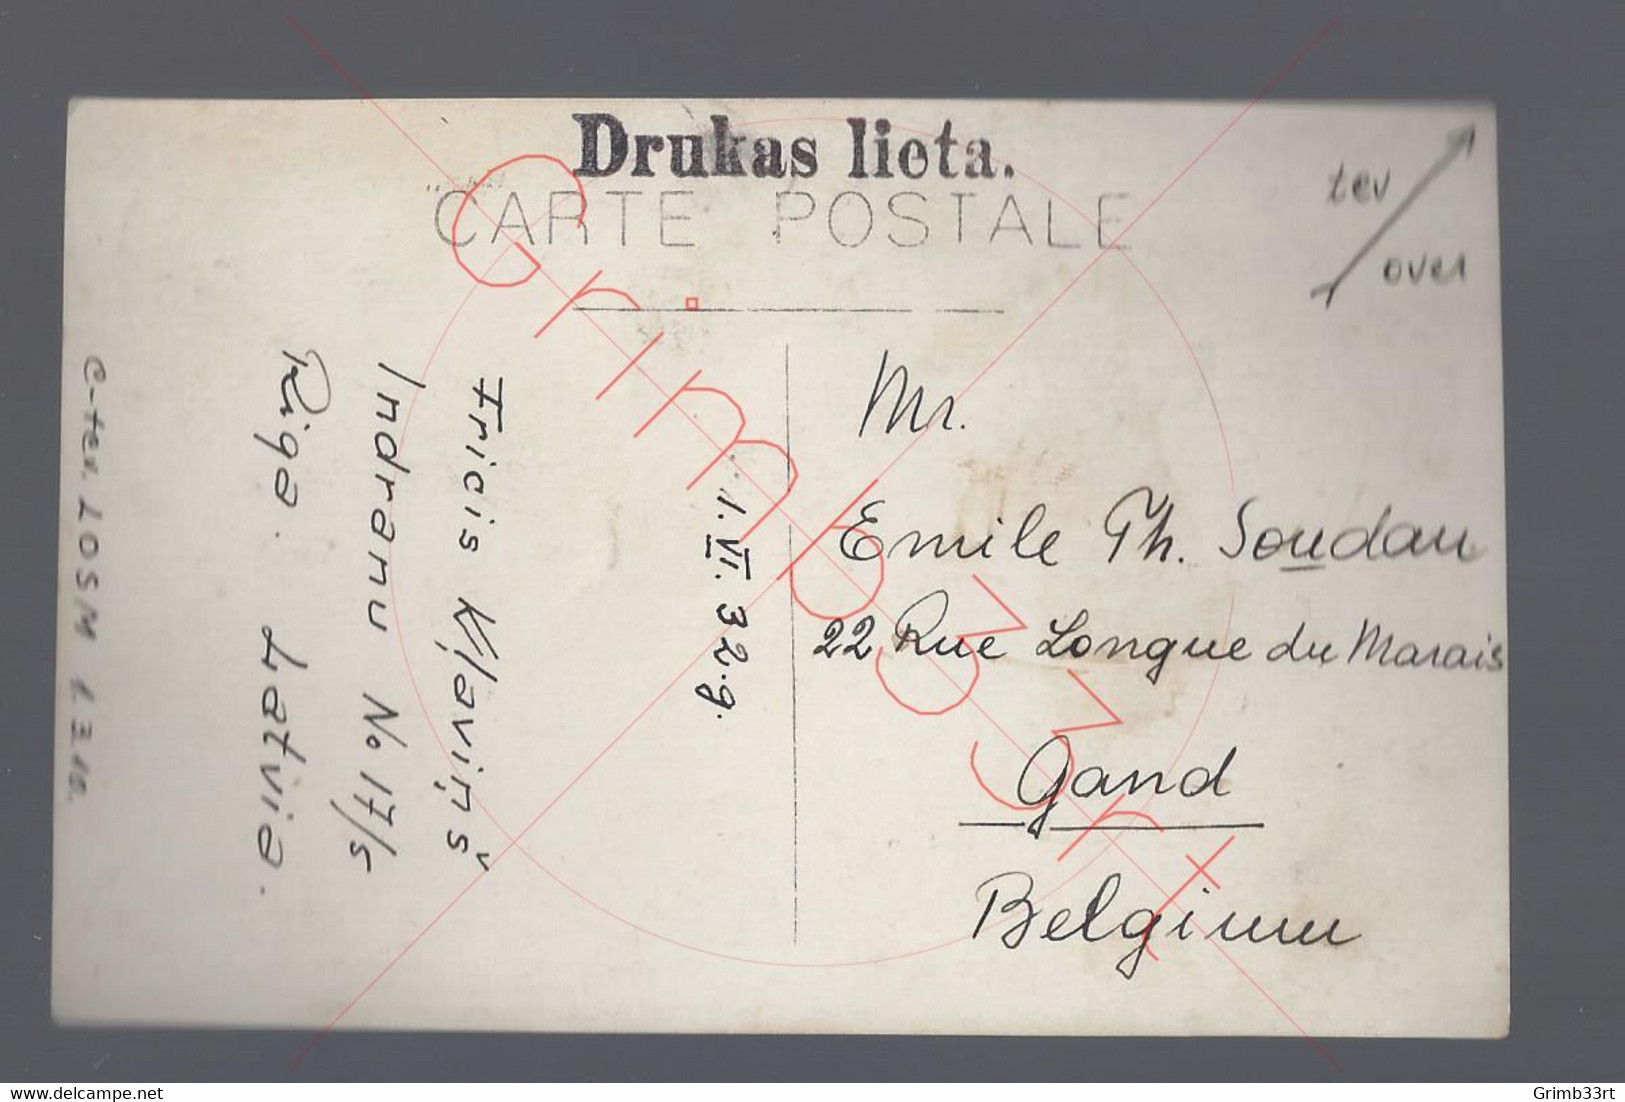 Drukas lieta.
CARTE POSTALE
tev
over
Mr.
Emile Th. Soudan
22 Rue Longue du Marais
Gand
Belgium
1. VI. 32. g.
Fricis Kļaviņš
Indranu No 17/5
Riga. Latvia.
Grimb33rt
delcampe.net
Grimb33rt